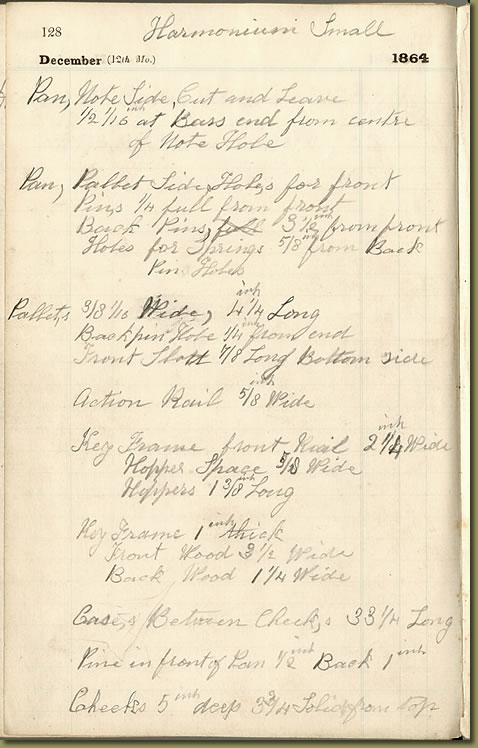 128 Harmonium Small
December (12th Mo.) 1864
Pan, Note Side, Cut and Leave
1/2 1/16 inch at Bass end from centre
of Note Hole
Pan, Pallet Side, Holes for front
Pins 1/4 full from front
Back Pins, full 3 1/2 inch from front
Holes for Springs 5/8 inch from Back
Pin Holes
Pallets 3/8 1/16 Wide, 4 1/4 inch Long
Backpin Hole 1/4 inch from end
Front Slott 7/8 Long Bottom side
Action Rail 5/8 inch Wide
Key Frame front Rail 2 1/4 inch Wide
Hopper Space 5/8 Wide
Hoppers 1 3/8 inch Long
Key Frame 1 inch thick
Front Wood 3 1/2 Wide
Back Wood 1 1/4 Wide
Case, Between Cheeks 33 1/4 Long
Pine in front of Pan 1/2 inch Back 1 inch
Cheeks 5 inch deep 3 3/4 Solid from top